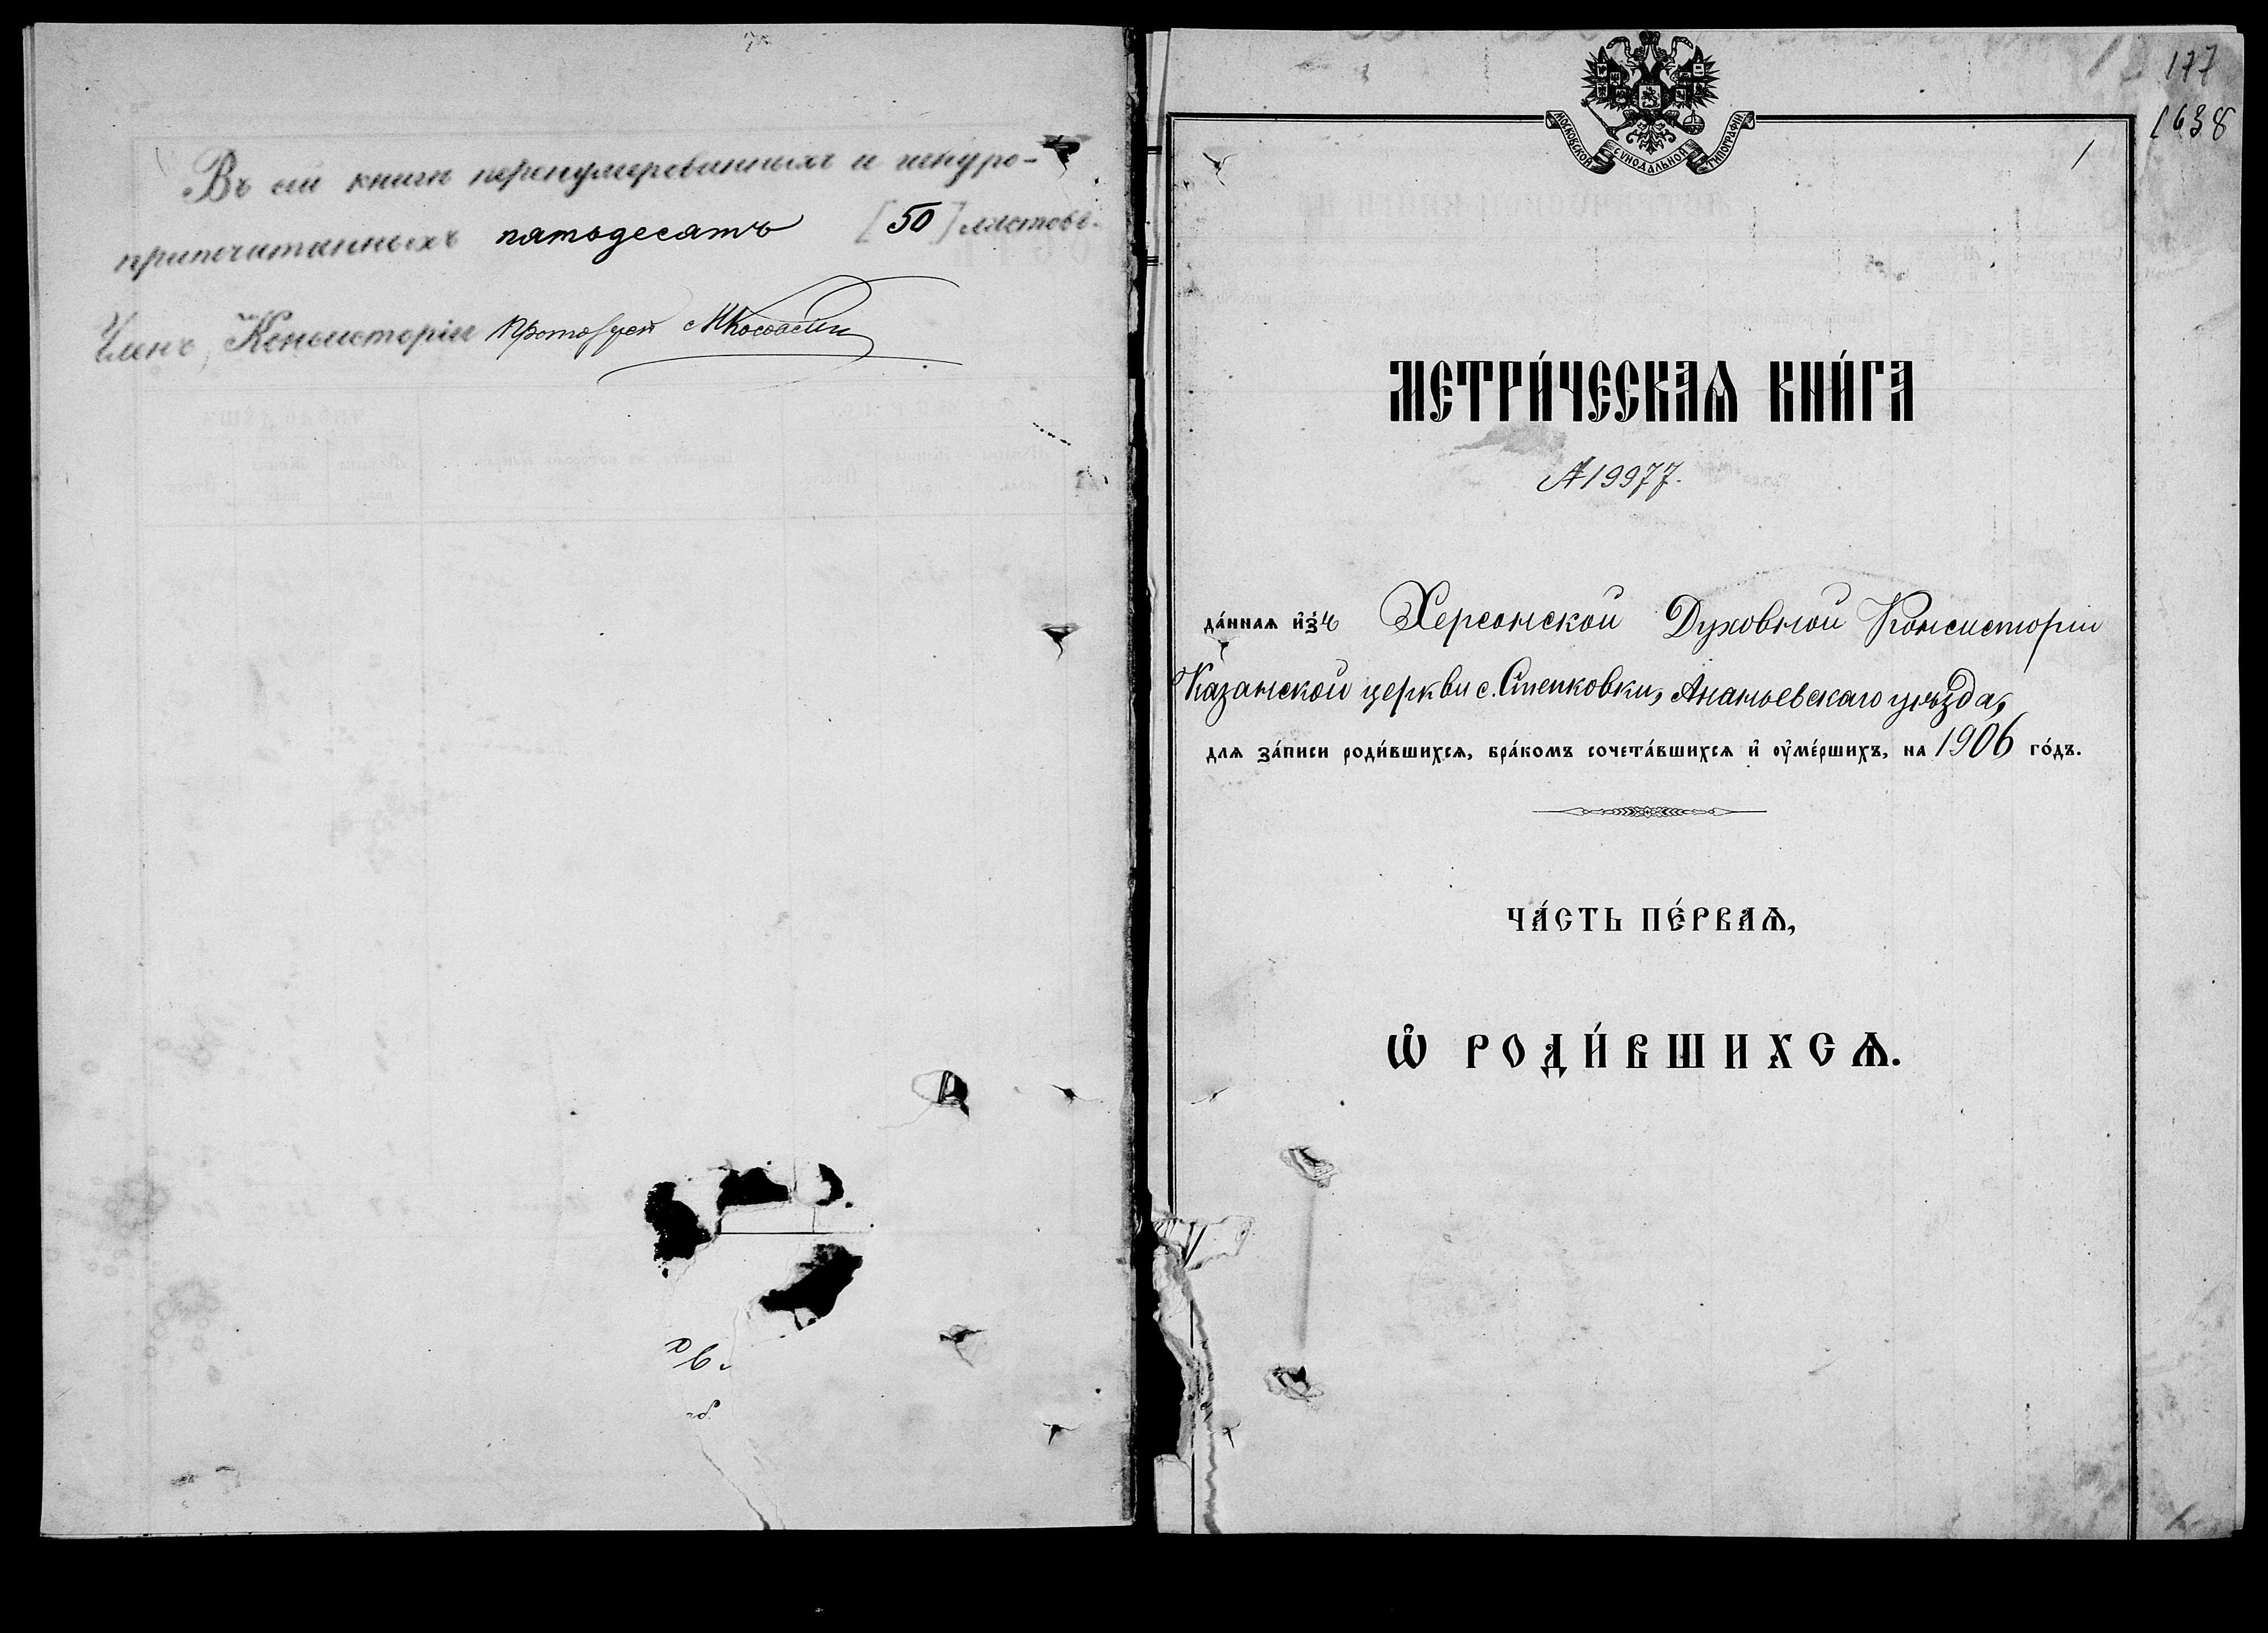 Въ сей книгѣ перенумерованныхъ и шнуро-
припечатанныхъ пятьдесятъ [50] листовъ.
Членъ Консисторіи Протоіерей
177
1638
1
МОСКОВСКОЙ СѴНОДАЛЬНОЙ ТИПОГРАФІИ
МЕТРИ́ЧЕСКАѦ КНИ́ГА
№ 19977.
да́ннаѧ и҆зъ Херсонской Духовной Консисторіи
Казанской церкви с. Степковки, Ананьевскаго уѣзда,
длѧ за́писи роди́вшихсѧ, бра́комъ сочета́вшихсѧ и҆ ᲂу҆ме́ршихъ, на 1906 го́дъ.
ЧА́СТЬ ПЕ́РВАѦ,
Ѡ҆ РОДИ́ВШИХСѦ.